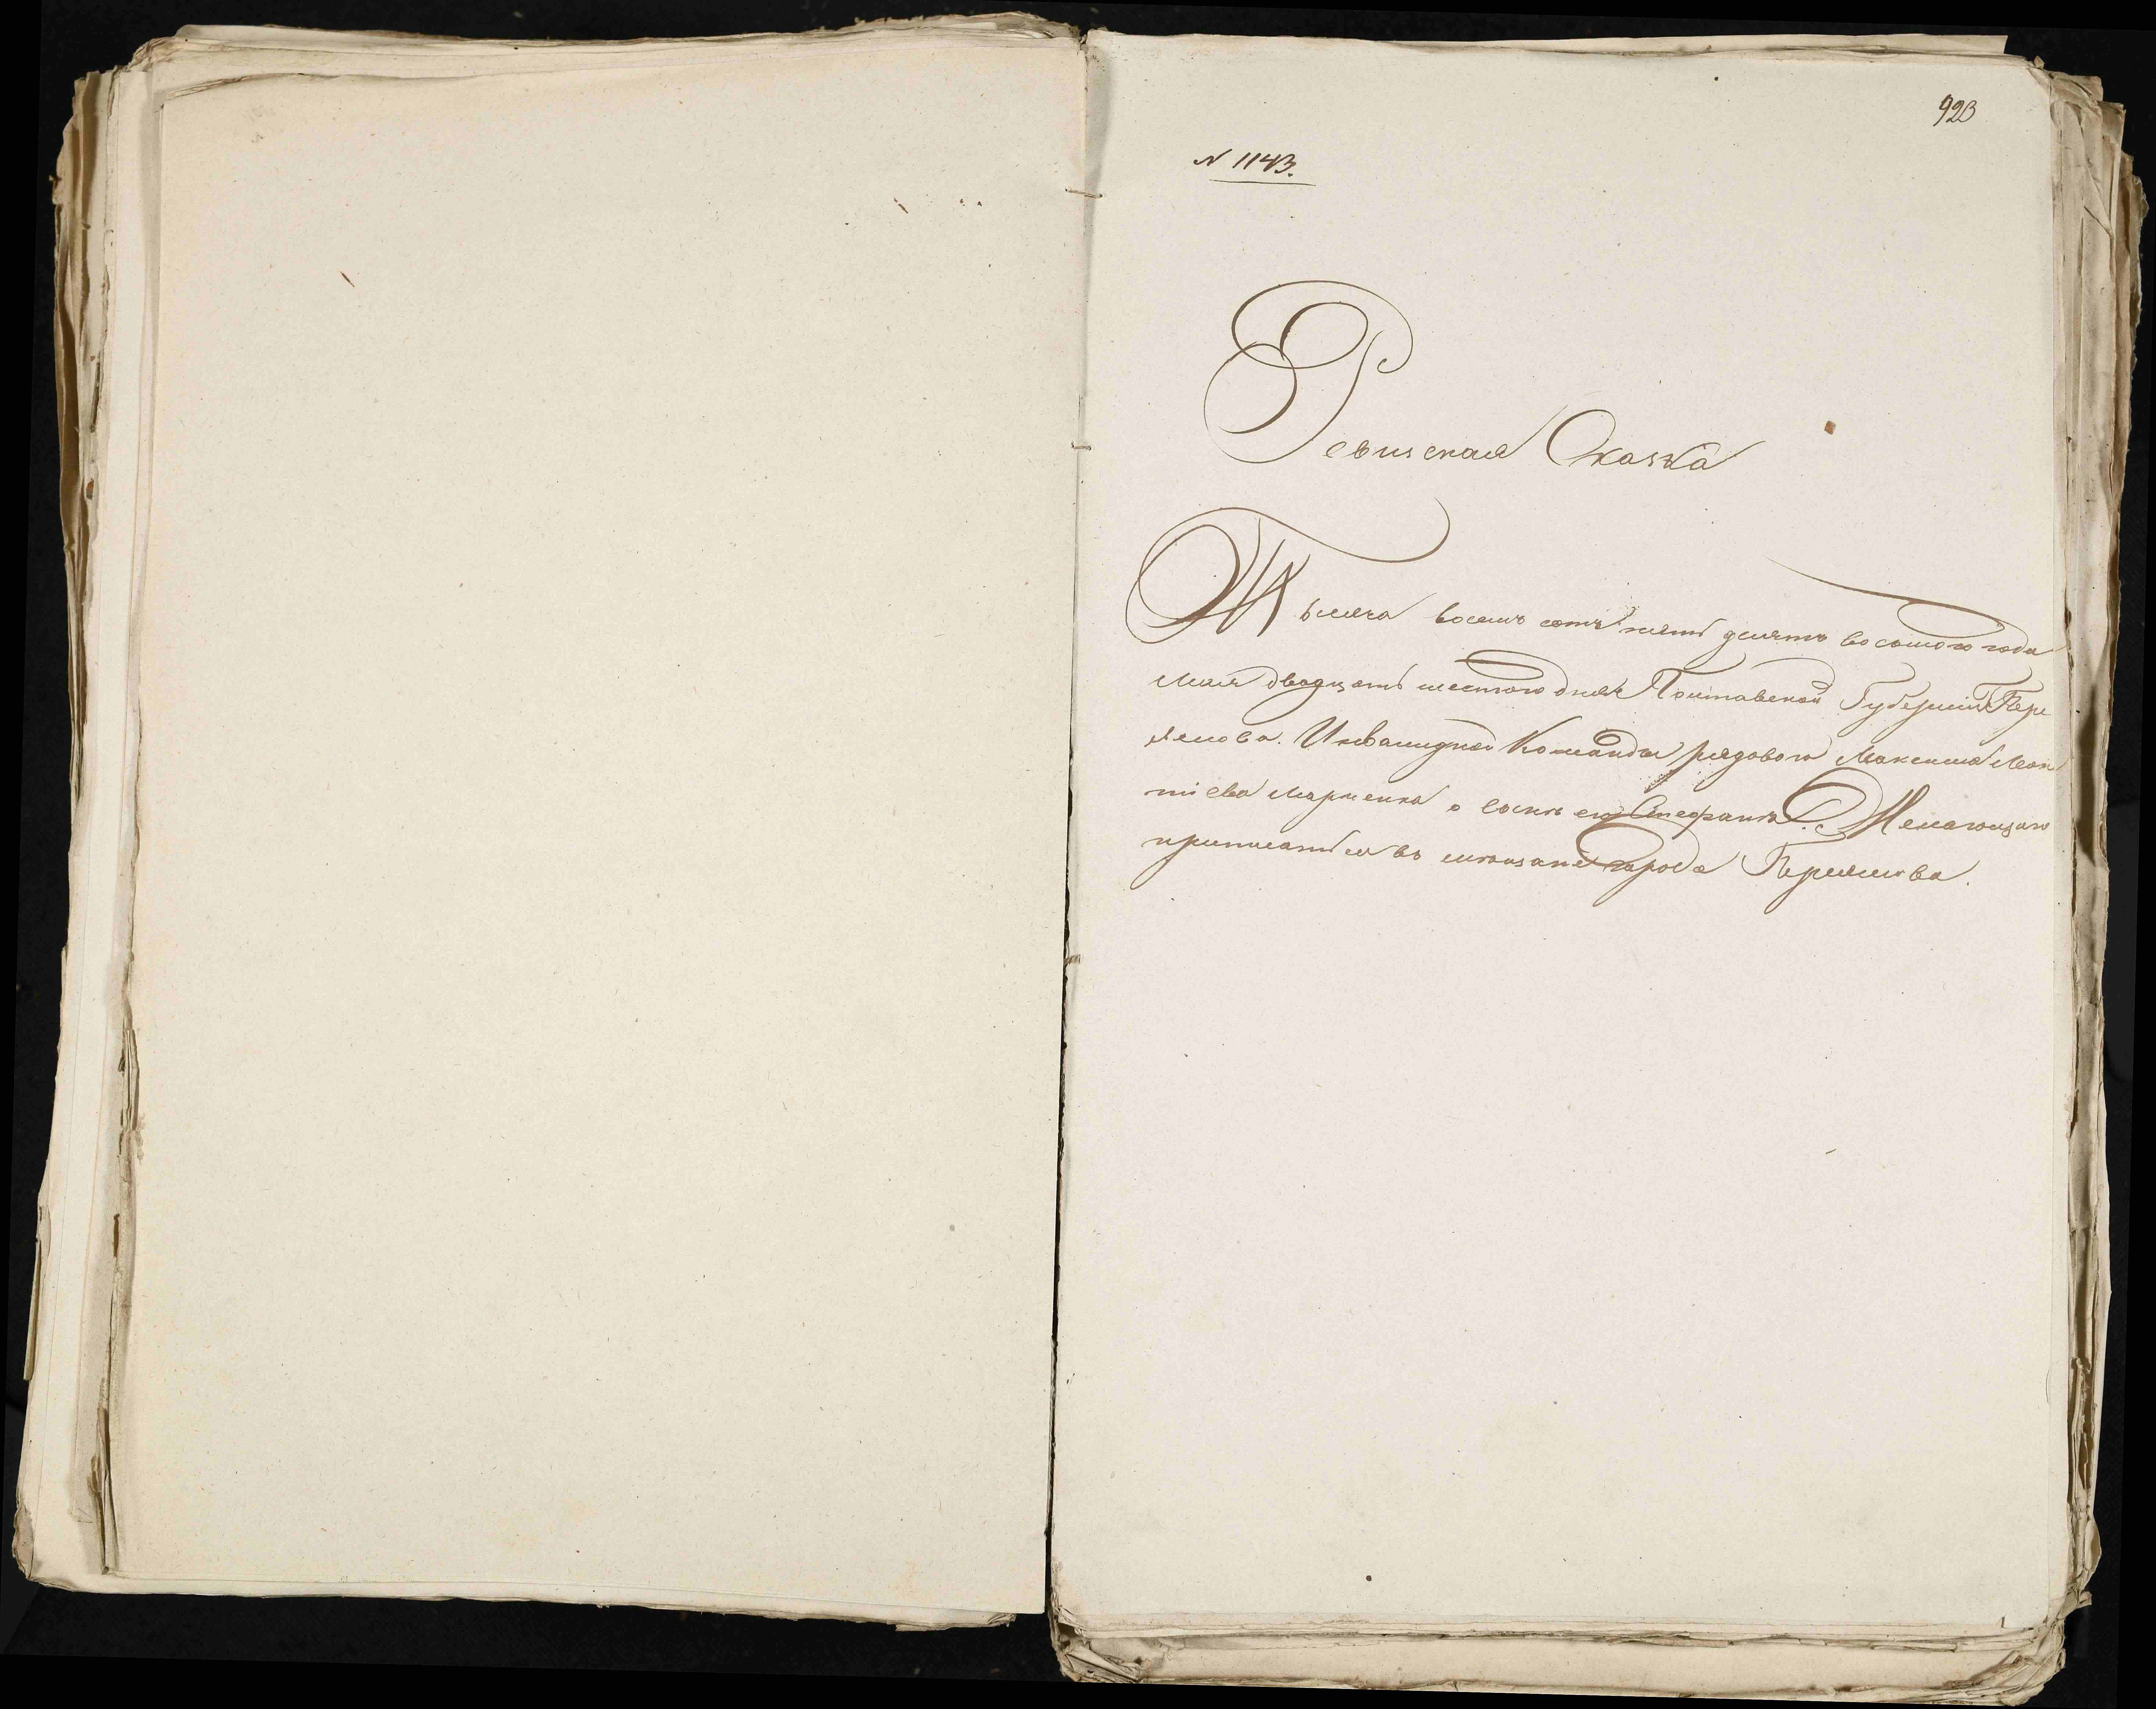 923
N 1143.
Ревизская Сказка
Тысяча восемь сотъ пять десятъ восьмого года
Мая двадцать шестого дня Полтавской Губерніи Пере
яслова. Инвалидной Команды рядового Максима Леон
тіева Марченка о сыне его Стефане. Желающаго
приписаться въ мещане города Переяслова.